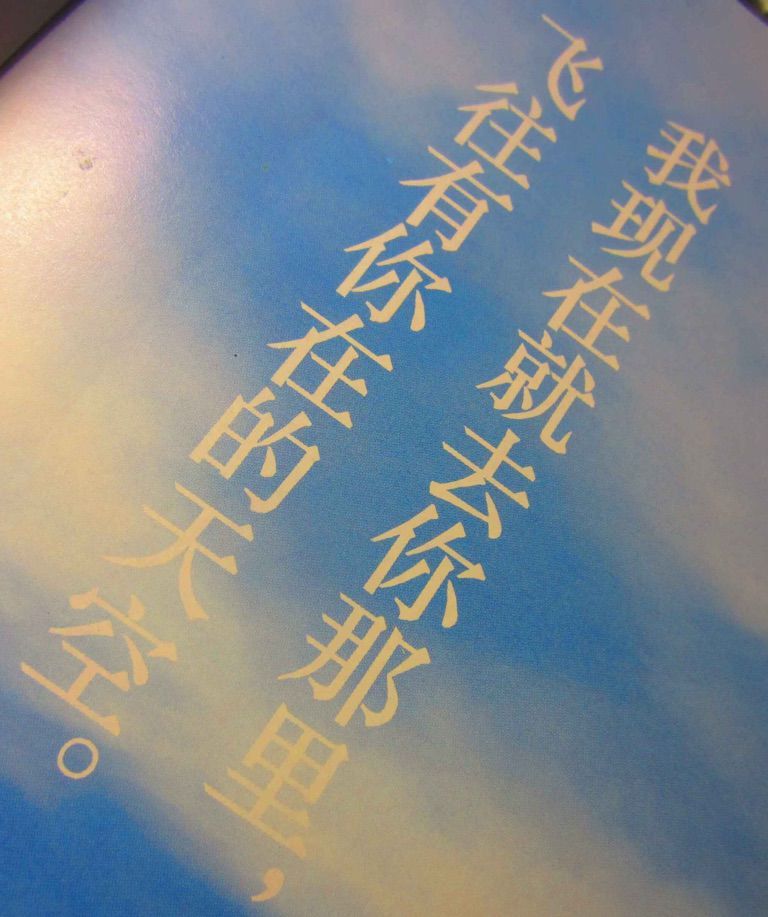 我现在就去你那里，
飞往有你在的天空。